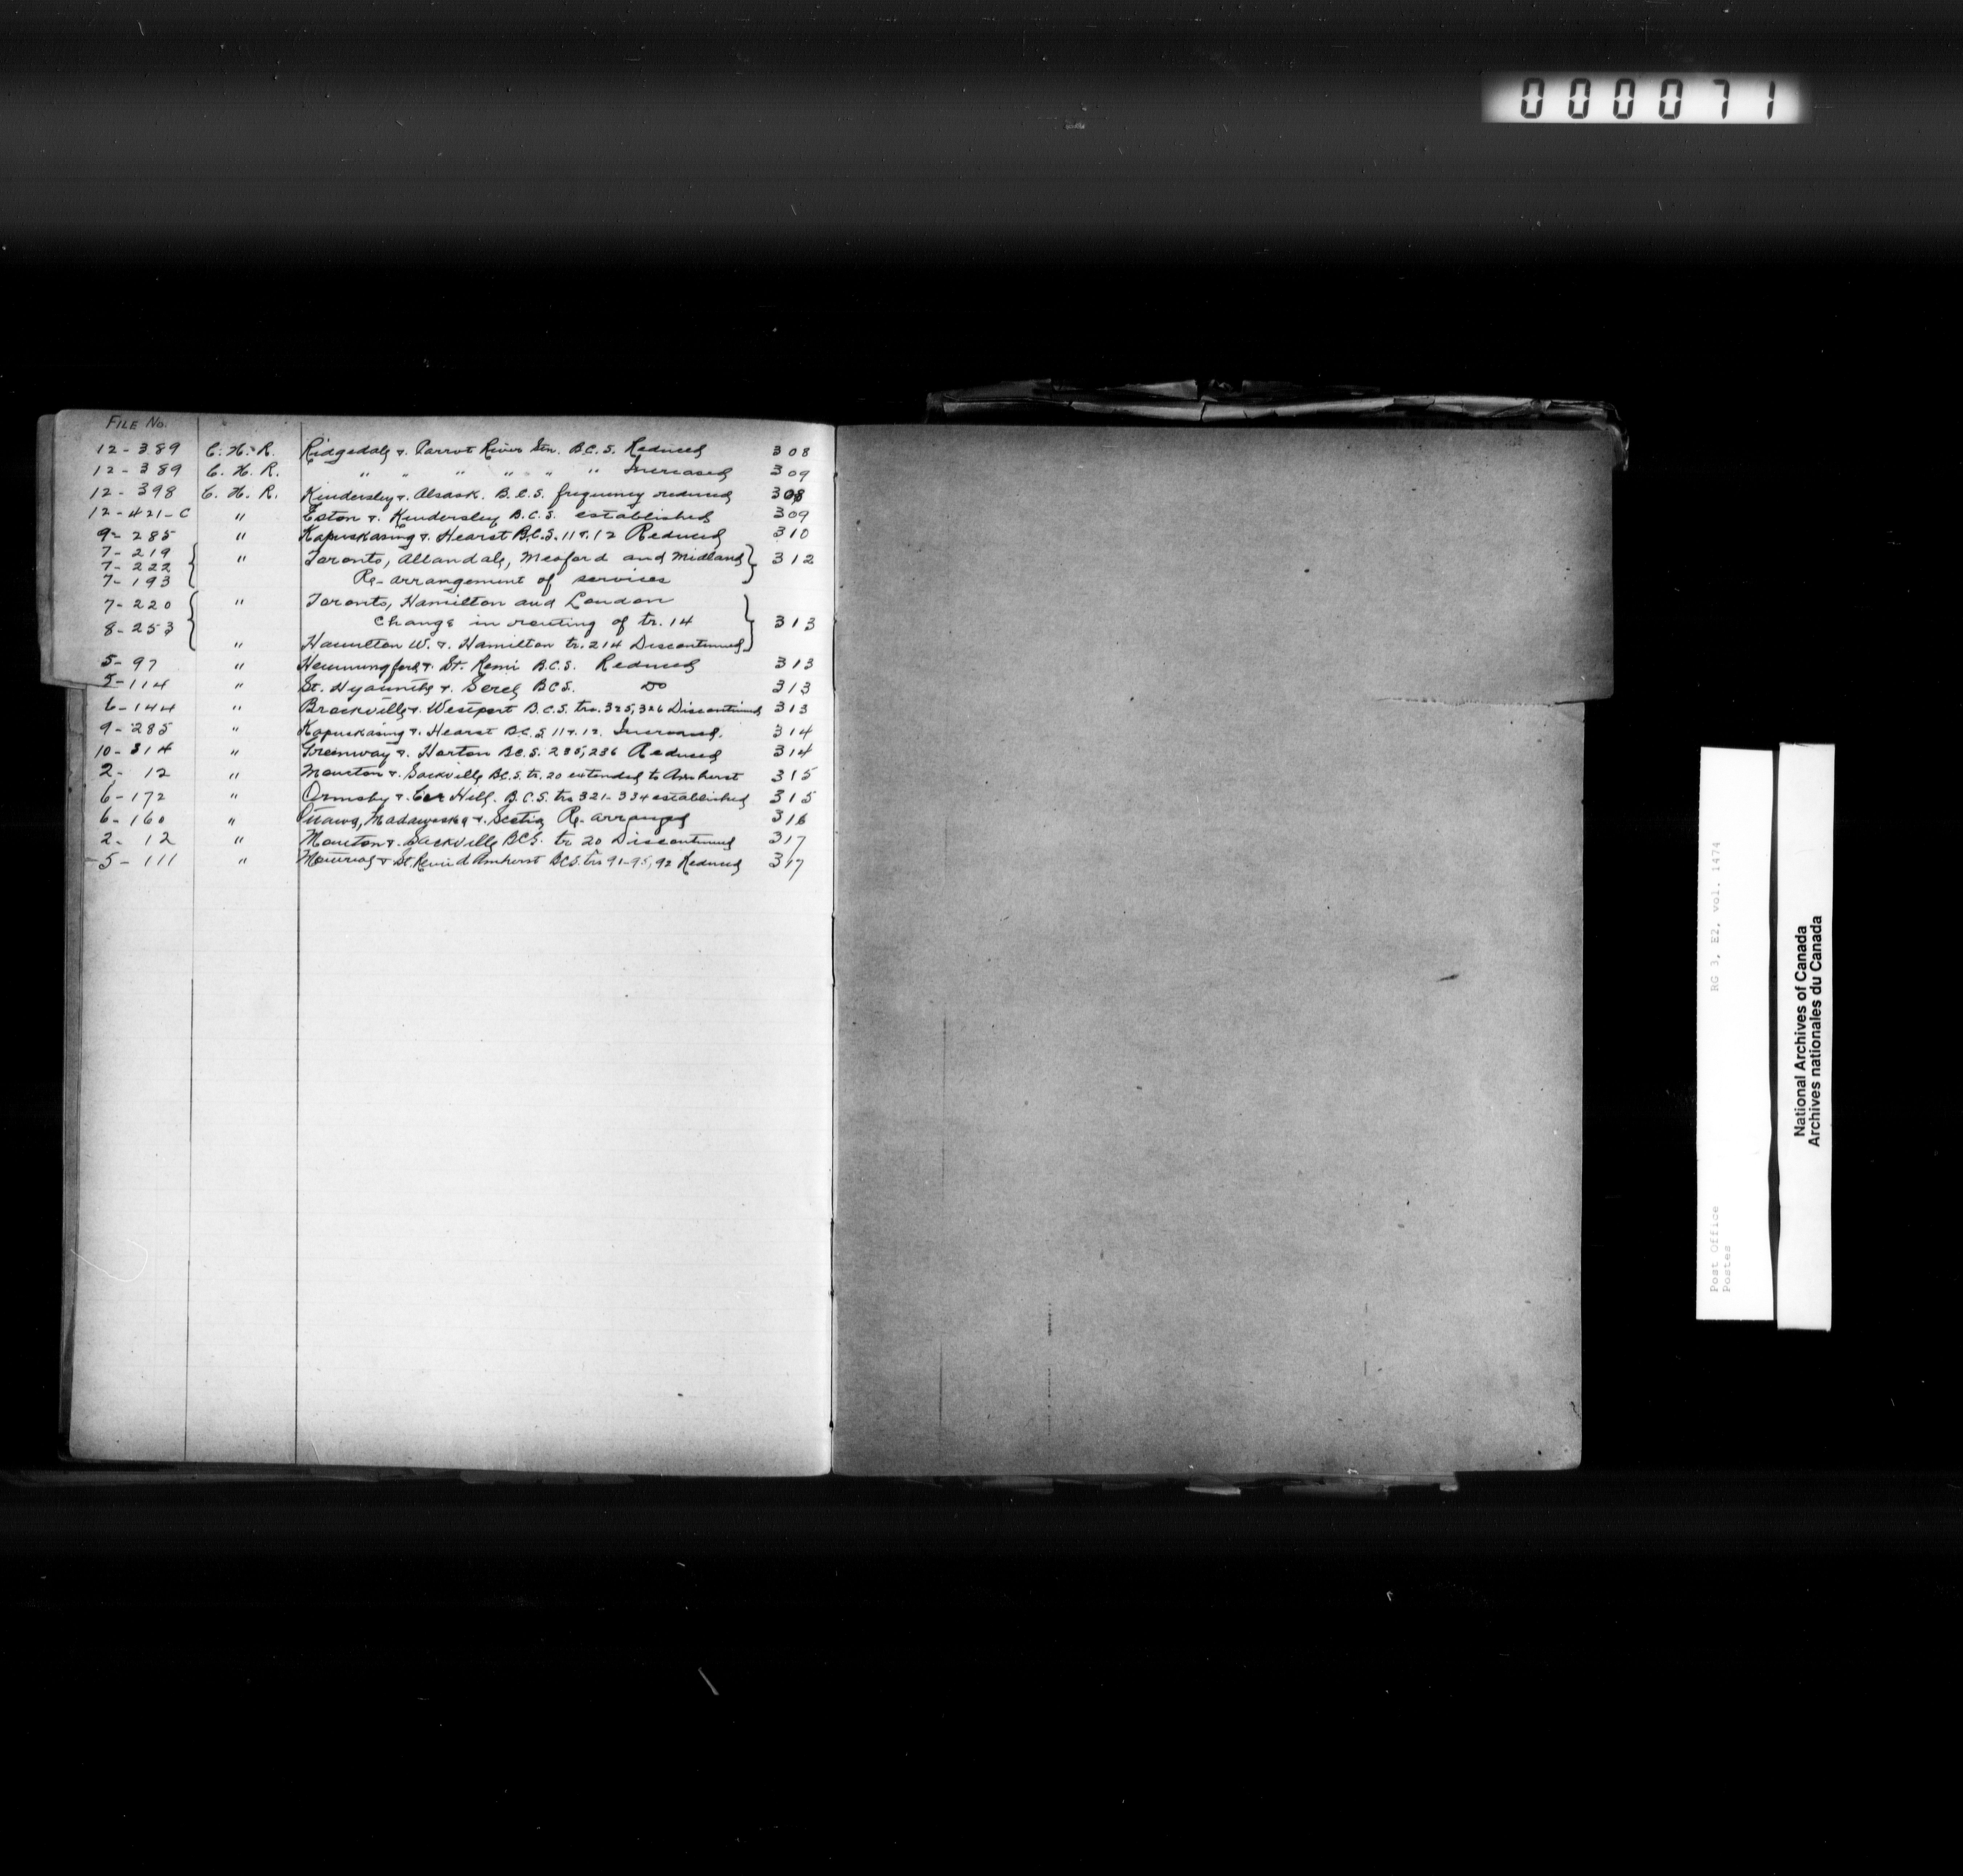 000071
FILE No.
12-389 C.N.R. Ridgedale & Carrot River Stn. B.C.S. Reduced 308
12-389 C.N.R. " " " " " " Increased 309
12-398 C.N.R. Kindersley & Alsask. B.C.S. frequency reduced 308
12-421-C " Eston & Kindersley B.C.S. established 309
9-285 " Kapuskasing & Hearst B.C.S. 11 & 12 Reduced 310
7-219
7-222 " Toronto, Allandale, Meaford and Midland 312
7-193 Re-arrangement of services
7-220 " Toronto, Hamilton and London
8-253 Change in routing of tr. 14 313
" Hamilton W. & Hamilton tr. 214 Discontinued
5-97 " Hemmingford & St. Remi B.C.S. Reduced 313
5-114 " St. Hyacinthe & Sorel B.C.S. Do 313
6-144 " Brockville & Westport B.C.S. trs. 325, 326 Discontinued 313
9-285 " Kapuskasing & Hearst B.C.S. 11 & 12. Increased. 314
10-314 " Greenway & Horton B.C.S. 235, 236 Reduced 314
2-12 " Moncton & Sackville B.C.S. tr. 20 extended to Amherst 315
6-172 " Ormsby & Coe Hill. B.C.S. trs 321-334 established 315
6-160 " Ottawa, Madawaska & Scotia Re-arranged 316
2-12 " Moncton & Sackville B.C.S. tr 20 Discontinued 317
5-111 " Montreal & St. Remi d'Amherst B.C.S. trs 91-95, 92 Reduced 317
Post Office RG 3, E2, vol. 1474
Postes
National Archives of Canada
Archives nationales du Canada